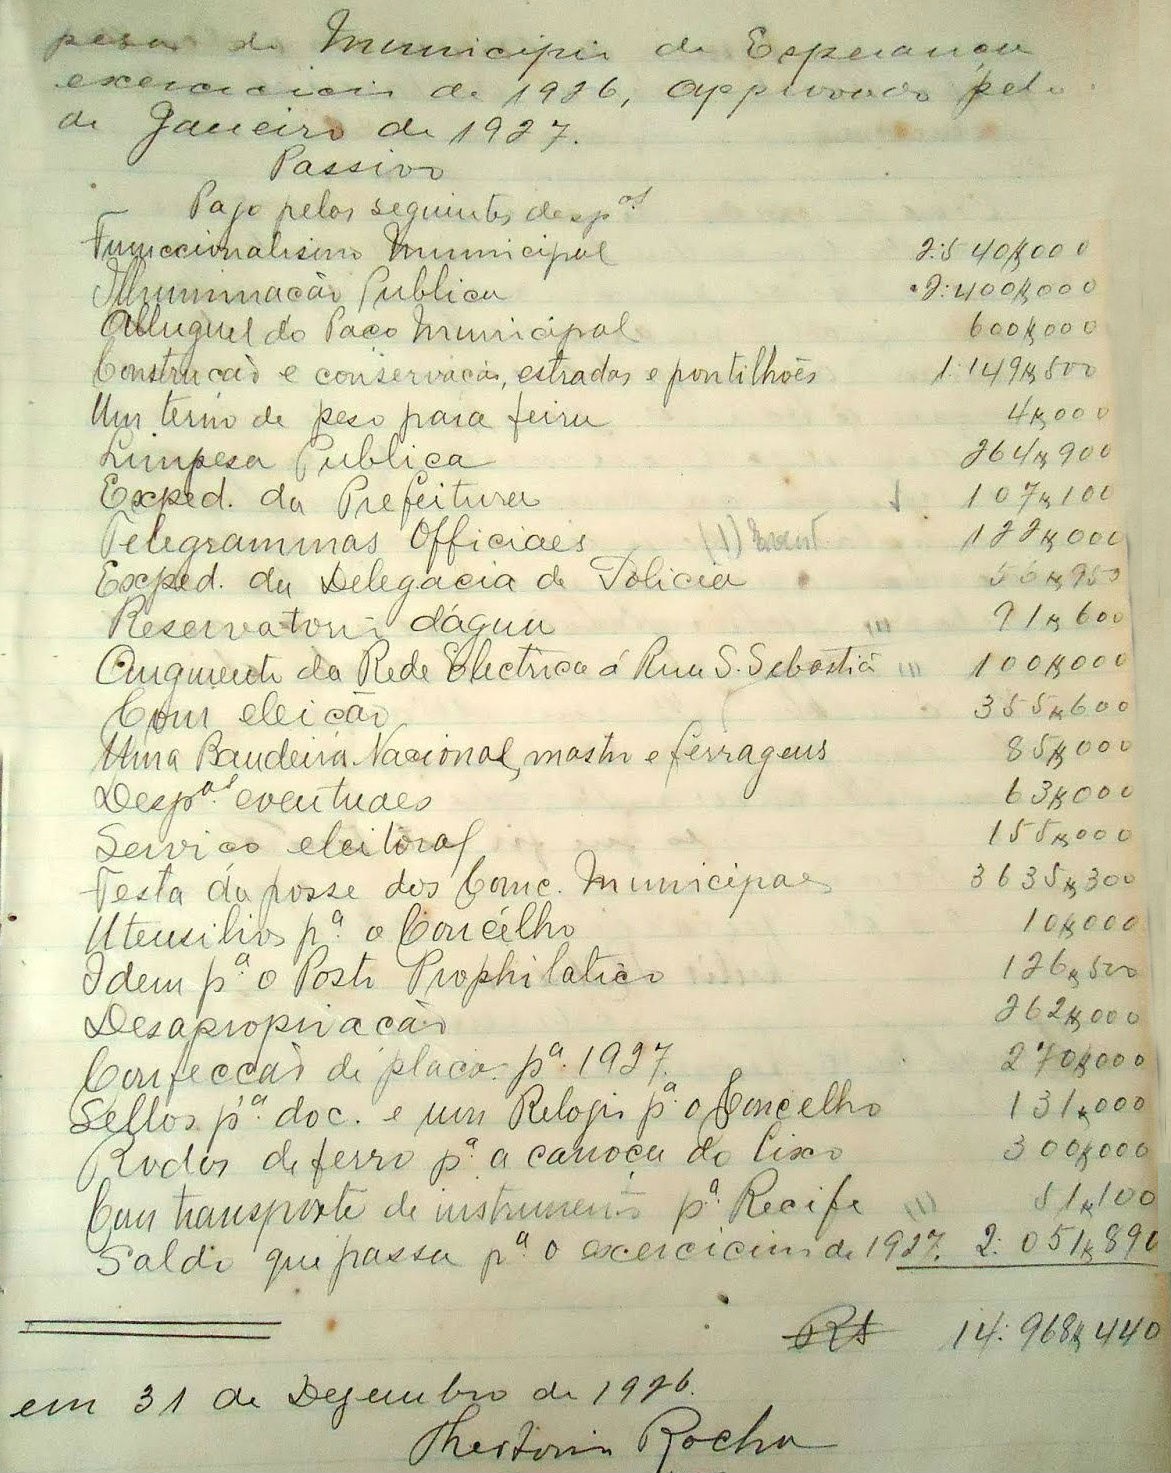 pesas do Municipio de Esperança
exercicio de 1926, approvado pelo
de Janeiro de 1927.
Passivo
Pago pelas seguintes desp.as
Funccionalismo Municipal 2:540$000
Illuminação Publica 2:400$000
Alluguel do Paço Municipal 600$000
Construcção e conservação, estradas e pontilhões 1:149$500
Um terno de peso para feira 4$000
Limpesa Publica 264$900
Exped. da Prefeitura 107$100
Telegrammas Officiaes 122$000
Exped. da Delegacia de Policia 56$950
Reservatorio d'água 21$600
Augmento da Rede Electrica á Rua S. Sebastiã 100$000
Com eleição 355$600
Uma Bandeira Nacional, mastro e ferragens 85$000
Desp.as eventuaes 63$000
Serviço eleitoral 155$000
Festa da posse dos Conc. Municipaes 3635$300
Utensilios p.a o Concêlho 10$000
Idem p.a o Posto Prophilatico 126$500
Desapropriação 262$000
Confecção de placas p.a 1927. 270$000
Sellos p.a doc. e um Relogio p.a o Concelho 131$000
Rodas de ferro p.a a carroça do Lixo 300$000
Com transporte de instrumento p.a Recife 51$100
Saldo que passa p.a o exercicio de 1927. 2:051$890
Rs 14:968$440
em 31 de Dezembro de 1926.
Rocha